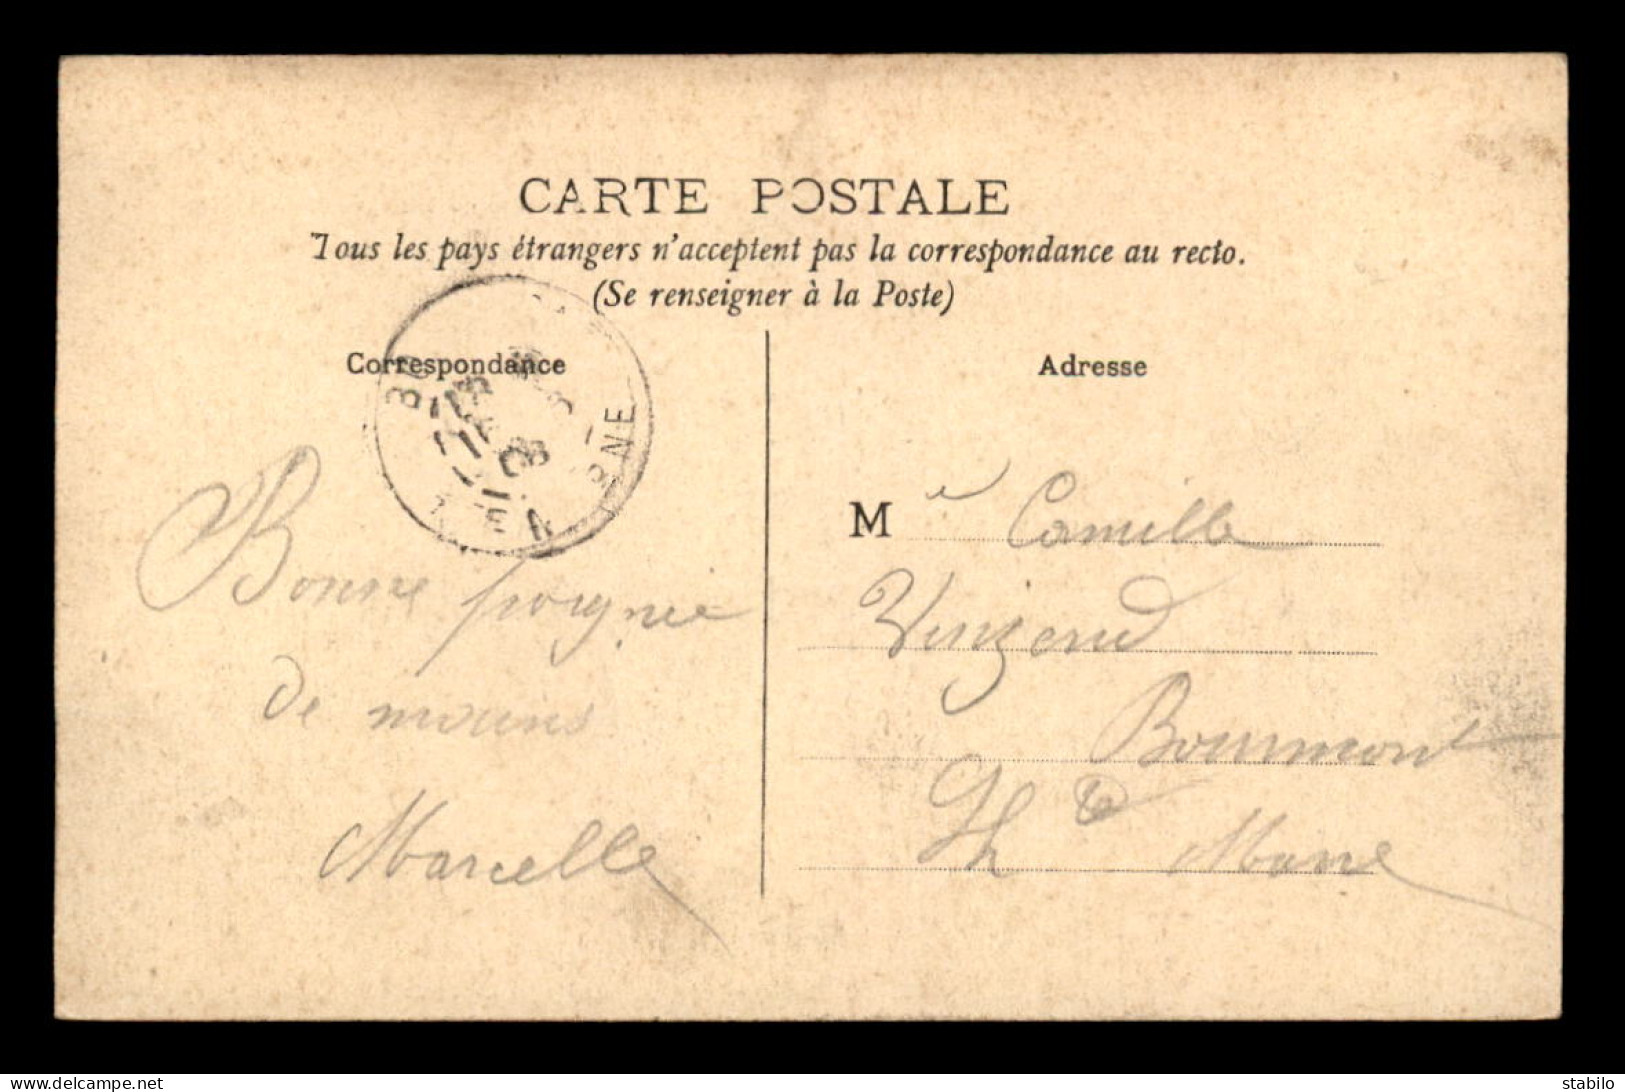 CARTE POSTALE
Tous les pays étrangers n'acceptent pas la correspondance au recto.
(Se renseigner à la Poste)
Correspondance
Adresse
Bonne poignée
de mains
Marcelle
M Camille
Bourmont
Hte Marne
delcampe.net
stabilo